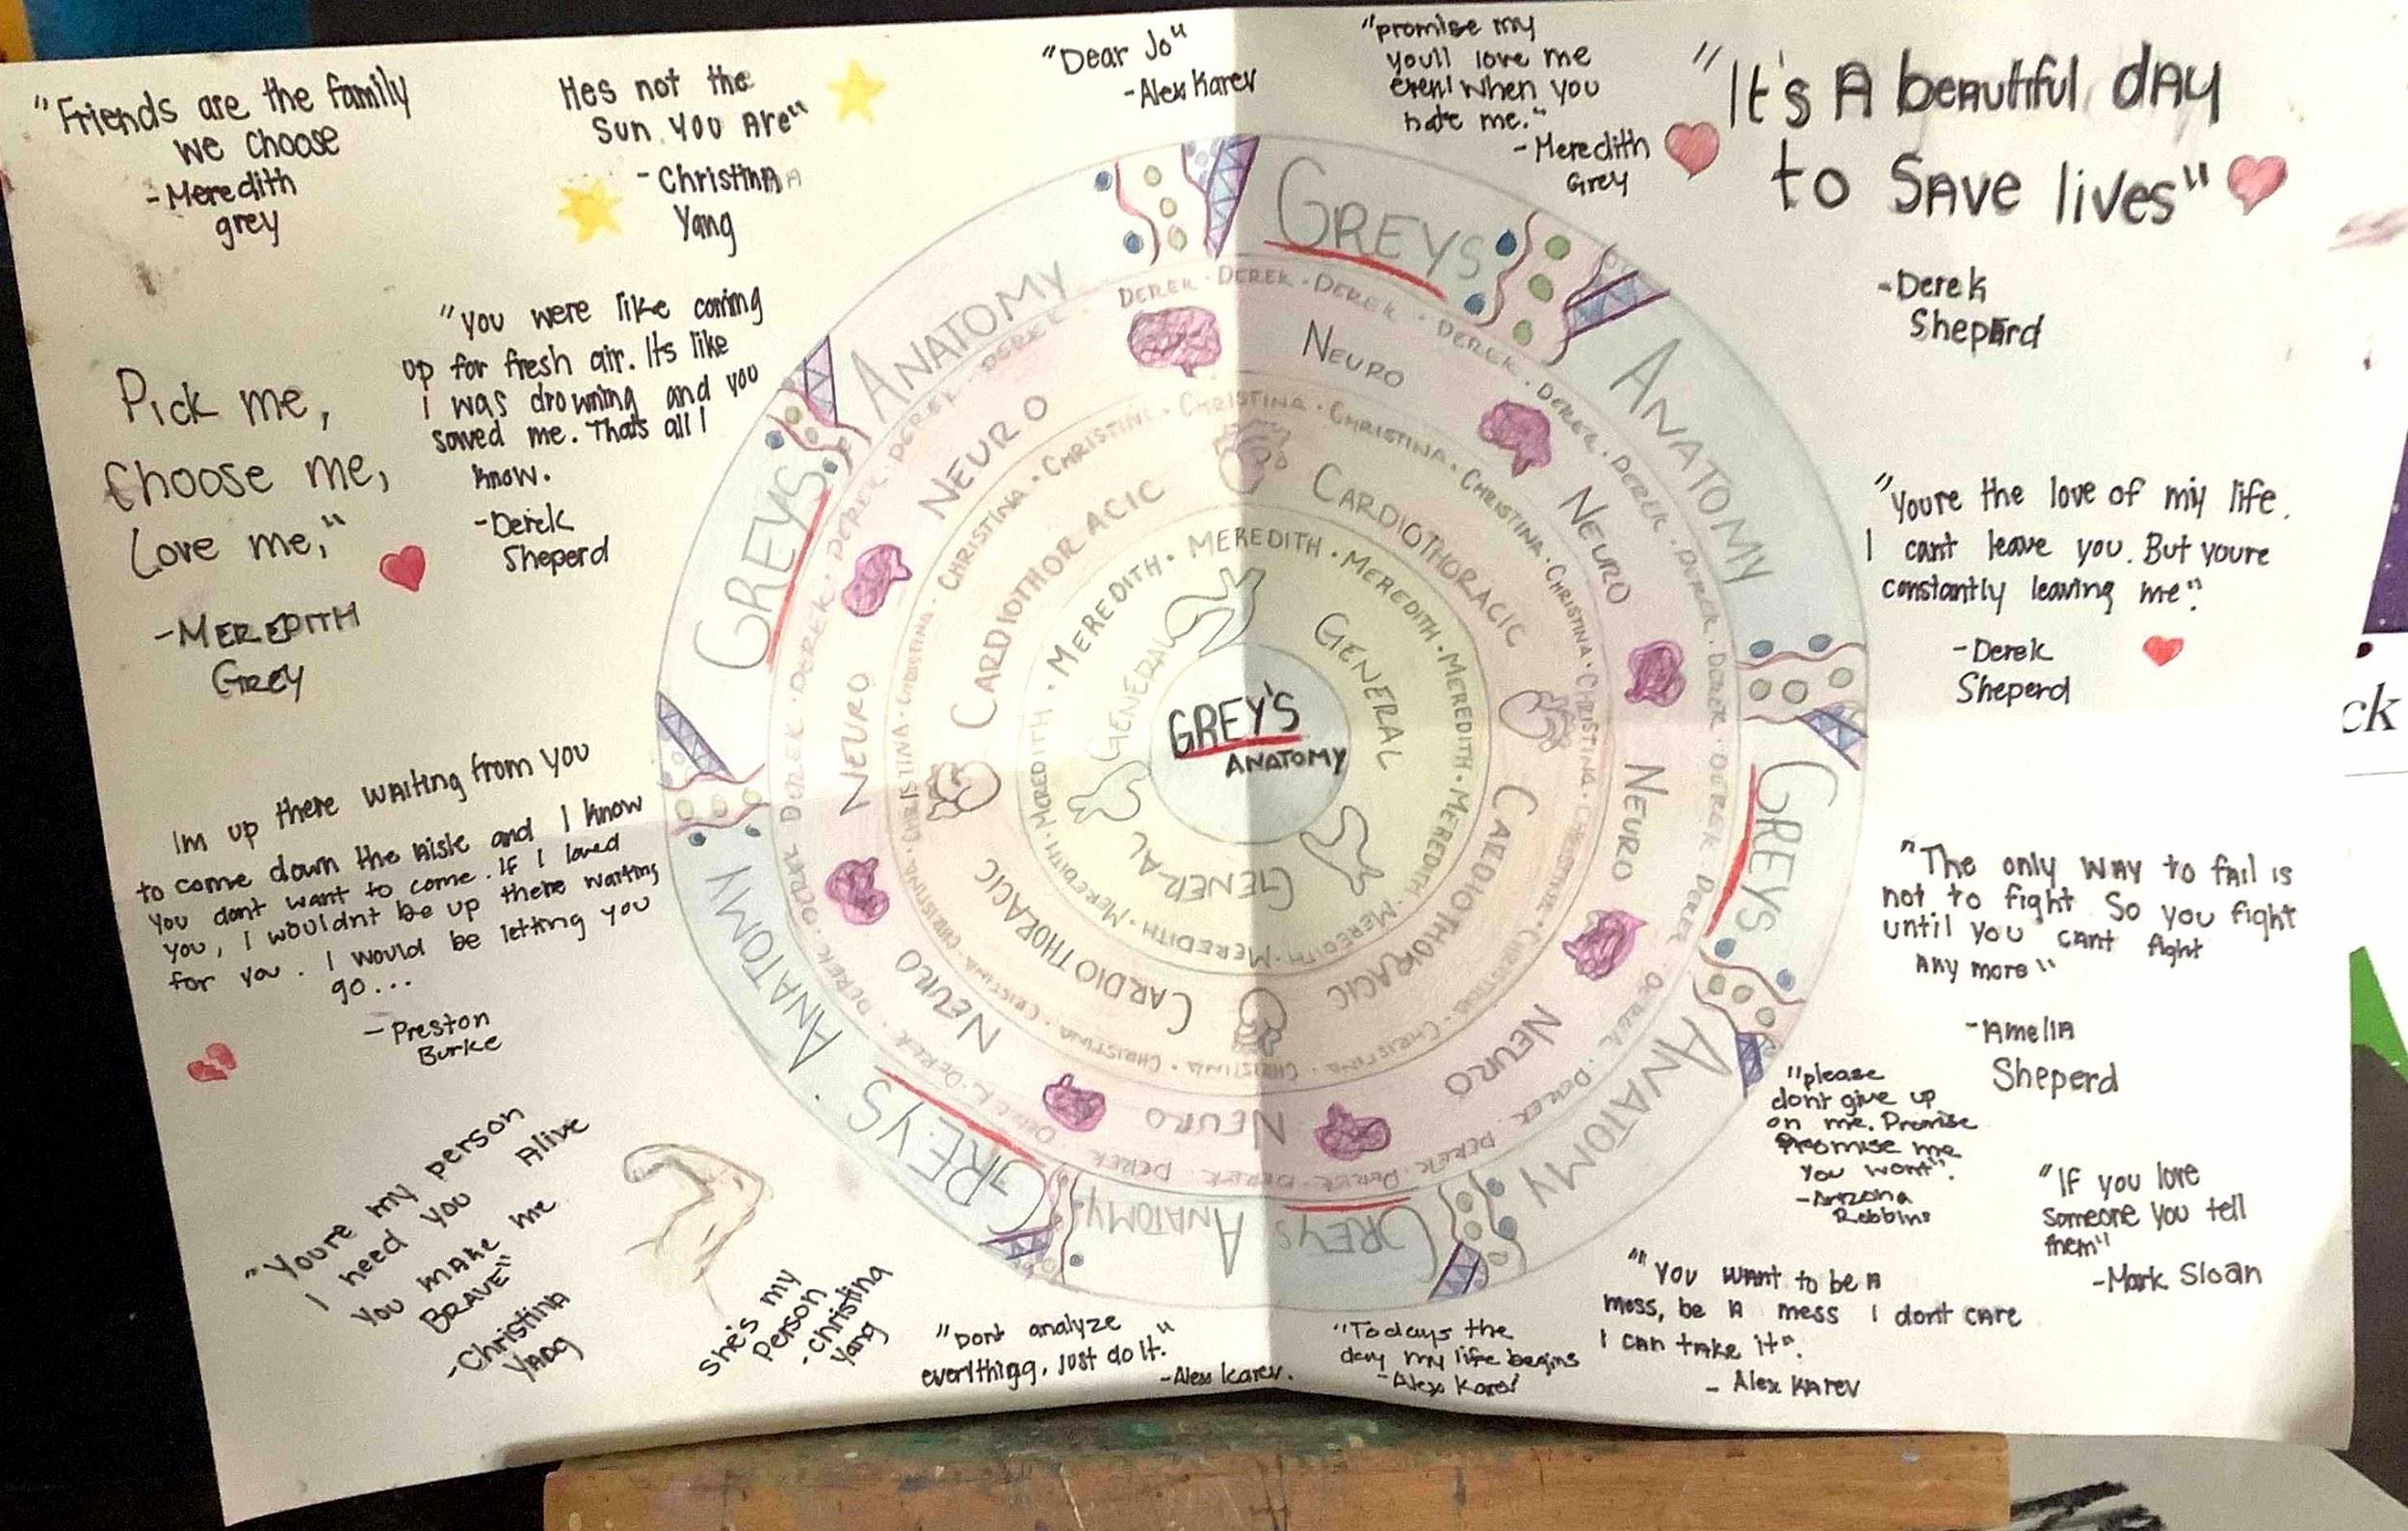 "Friends are the family
we choose
-Meredith
grey
Hes not the
Sun. You Are"
- Christina
Yang
"Dear Jo"
-Alex Karev
"promise my
youll love me
even when you
hate me."
-Meredith
Grey
"It's A beautiful dAy
to SAve lives"
-Derek
Sheperd
Pick me,
Choose me,
Love me,"
-MEREDITH
GREY
"you were like coming
up for fresh air. Its like
i was drowning and you
saved me. Thats all I
know.
-Derek
Sheperd
"Youre the love of my life.
I cant leave you. But youre
constantly leaving me".
-Derek
Sheperd
Im up there waiting from you
to come down the aisle and I know
you dont want to come. If I loved
you, I wouldnt be up there waiting
for you. I would be letting you
go...
-Preston
Burke
"The only way to fail is
not to fight So you fight
until you cant fight
Any more"
-Amelia
Sheperd
"Youre my person
I need you Alive
You make me
BRAVE"
-Christina
Yang
She's my
Person
-Christina
Yang
"Dont analyze
everything, just do it."
-Alex Karev.
"Todays the
day my life begins
-Alex Karev
"You want to be A
mess, be A mess I dont care
I can take it".
- Alex Karev
"please
dont give up
on me. Promise
Promise me
you wont".
-Arizona
Robbins
"If you love
someone you tell
them"
-Mark Sloan
GREY'S
ANATOMY
GREYS
ANATOMY
GREYS
ANATOMY
GREYS
ANATOMY
GREYS
ANATOMY
GREYS
ANATOMY
DEREK · DEREK · DEREK · DEREK · DEREK · DEREK · DEREK · DEREK · DEREK · DEREK
NEURO
NEURO
NEURO
NEURO
NEURO
NEURO
NEURO
NEURO
CHRISTINA · CHRISTINA · CHRISTINA · CHRISTINA · CHRISTINA · CHRISTINA
CARDIOTHORACIC
CARDIOTHORACIC
CARDIOTHORACIC
CARDIOTHORACIC
MEREDITH · MEREDITH · MEREDITH · MEREDITH · MEREDITH · MEREDITH · MEREDITH · MEREDITH · MEREDITH
GENERAL
GENERAL
GENERAL
ck